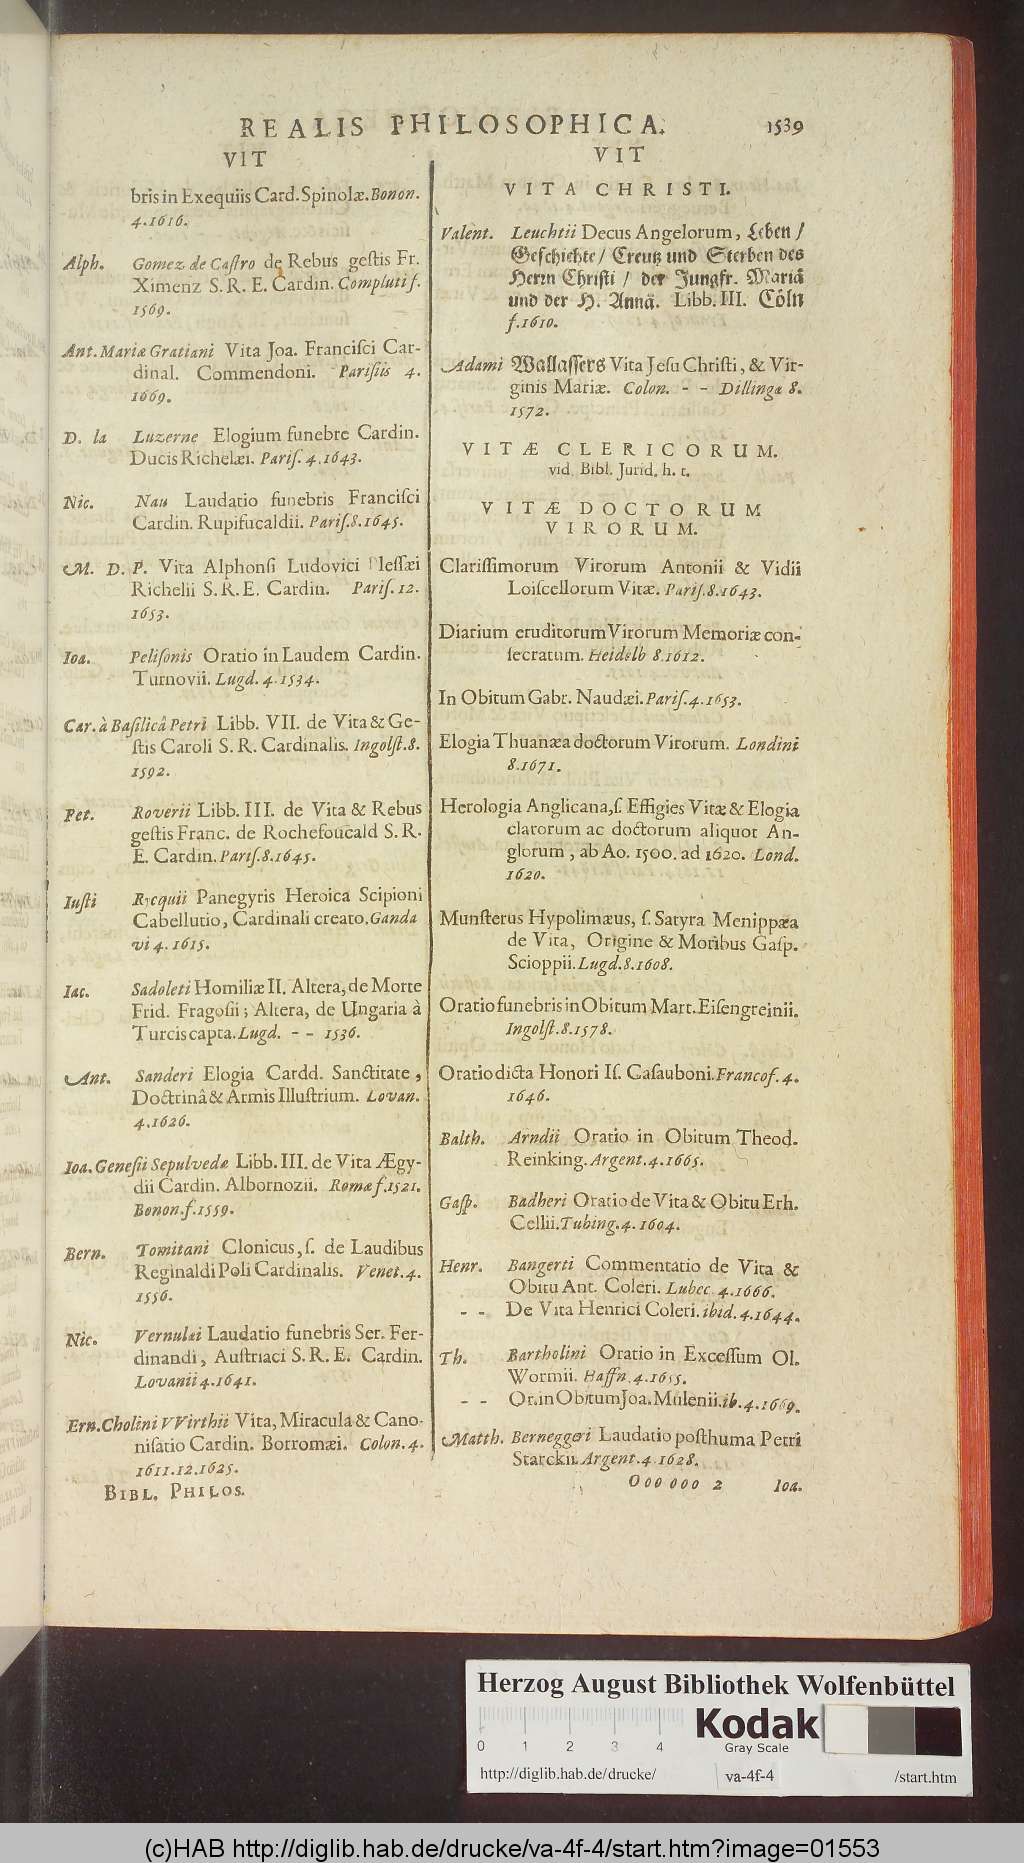 REALIS PHILOSOPHICA. 1539
VIT
bris in Exequiis Card. Spinolæ. Bonon.
4. 1616.
Alph. Gomez de Castro de Rebus gestis Fr.
Ximenz S. R. E. Cardin. Compluti f.
1569.
Ant. Mariæ Gratiani Vita Joa. Francisci Car-
dinal. Commendoni. Parisiis 4.
1669.
D. la Luzerne Elogium funebre Cardin.
Ducis Richelæi. Paris. 4. 1643.
Nic. Nau Laudatio funebris Francisci
Cardin. Rupifucaldii. Paris. 8. 1645.
M. D. P. Vita Alphonsi Ludovici Plessæi
Richelii S. R. E. Cardin. Paris. 12.
1653.
Ioa. Pelisonis Oratio in Laudem Cardin.
Turnovii. Lugd. 4. 1534.
Car. à Basilicâ Petri Libb. VII. de Vita & Ge-
stis Caroli S. R. Cardinalis. Ingolst. 8.
1592.
Pet. Roverii Libb. III. de Vita & Rebus
gestis Franc. de Rochefoucald S. R.
E. Cardin. Paris. 8. 1645.
Iusti Rycquii Panegyris Heroica Scipioni
Cabellutio, Cardinali creato. Ganda
vi 4. 1615.
Iac. Sadoleti Homiliæ II. Altera, de Morte
Frid. Fragosii; Altera, de Ungaria à
Turcis capta. Lugd. - - 1536.
Ant. Sanderi Elogia Cardd. Sanctitate,
Doctrinâ & Armis Illustrium. Lovan.
4. 1626.
Ioa. Genesii Sepulvedæ Libb. III. de Vita Ægy-
dii Cardin. Albornozii. Romæ f. 1521.
Bonon. f. 1559.
Bern. Tomitani Clonicus, s. de Laudibus
Reginaldi Poli Cardinalis. Venet. 4.
1556.
Nic. Vernulæi Laudatio funebris Ser. Fer-
dinandi, Austriaci S. R. E. Cardin.
Lovanii 4. 1641.
Ern. Cholini VVirthii Vita, Miracula & Cano-
nisatio Cardin. Borromæi. Colon. 4.
1611. 12. 1625.
BIBL. PHILOS.
VIT
VITA CHRISTI.
Valent. Leuchtii Decus Angelorum, Leben /
Geschichte / Creutz und Sterben des
Herrn Christi / der Jungfr. Mariä
und der H. Annä. Libb. III. Cöln
f. 1610.
Adami Wallassers Vita Jesu Christi, & Vir-
ginis Mariæ. Colon. - - Dillingæ 8.
1572.
VITÆ CLERICORUM.
vid. Bibl. Jurid. h. t.
VITÆ DOCTORUM
VIRORUM.
Clarissimorum Virorum Antonii & Vidii
Loiscellorum Vitæ. Paris. 8. 1643.
Diarium eruditorum Virorum Memoriæ con-
secratum. Heidelb 8. 1612.
In Obitum Gabr. Naudæi. Paris. 4. 1653.
Elogia Thuanæa doctorum Virorum. Londini
8. 1671.
Herologia Anglicana, s. Effigies Vitæ & Elogia
clarorum ac doctorum aliquot An-
glorum, ab Ao. 1500. ad 1620. Lond.
1620.
Munsterus Hypolimæus, s. Satyra Menippæa
de Vita, Origine & Moribus Gasp.
Scioppii. Lugd. 8. 1608.
Oratio funebris in Obitum Mart. Eisengreinii.
Ingolst. 8. 1578.
Oratio dicta Honori Is. Casauboni. Francof. 4.
1646.
Balth. Arndii Oratio in Obitum Theod.
Reinking. Argent. 4. 1665.
Gasp. Badheri Oratio de Vita & Obitu Erh.
Cellii. Tubing. 4. 1604.
Henr. Bangerti Commentatio de Vita &
Obitu Ant. Coleri. Lubec. 4. 1666.
- - De Vita Henrici Coleri. ibid. 4. 1644.
Th. Bartholini Oratio in Excessum Ol.
Wormii. Haffn. 4. 1655.
- - Or. in Obitum Joa. Mulenii. ib. 4. 1669.
Matth. Berneggeri Laudatio posthuma Petri
Starckii. Argent. 4. 1628.
Ooo ooo 2 Ioa.
Herzog August Bibliothek Wolfenbüttel
0 1 2 3 4
Kodak
Gray Scale
http://diglib.hab.de/drucke/ va-4f-4 /start.htm
(c)HAB http://diglib.hab.de/drucke/va-4f-4/start.htm?image=01553